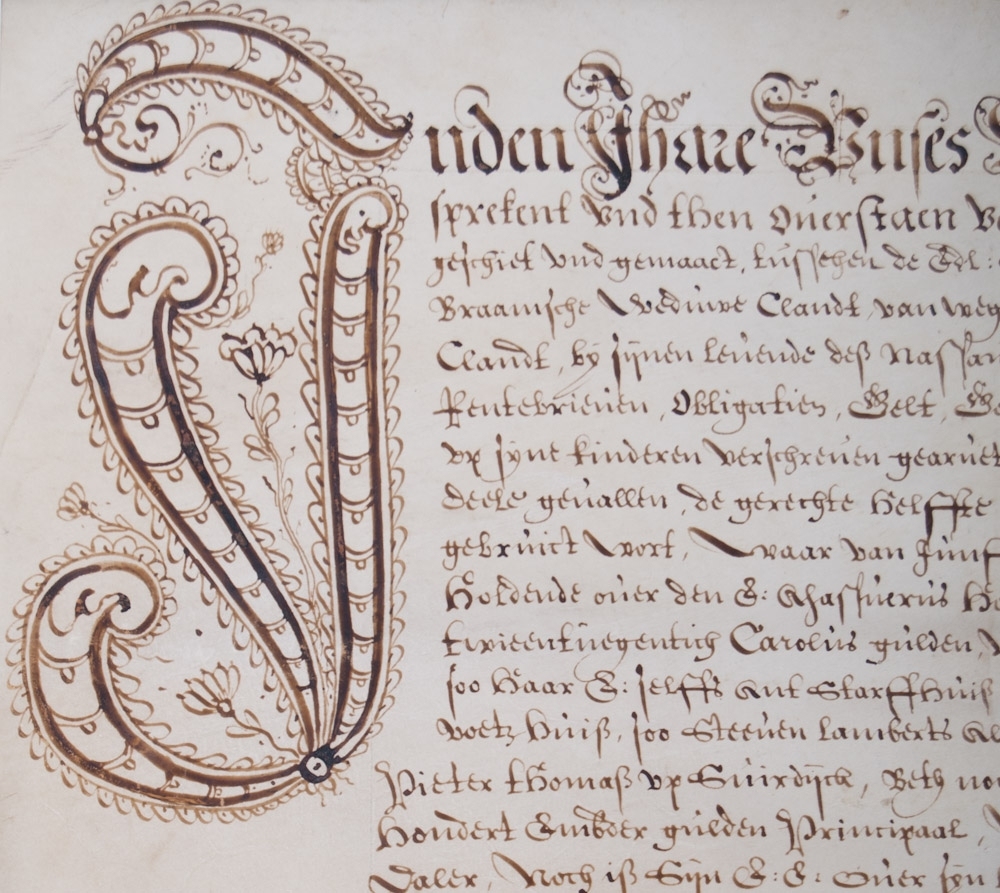 Inden Jhare Vnses
sprekent vnd then ouerstaen
geschiet vnd gemaact, tusschen de Edl:
Braamsche Weduwe Clandt, van weg
Clandt, by synen leuende deß Nassau
Rentebrieuen, Obligatien, Gelt,
vp syne kinderen verschreuen gearuet
deele geuallen, de gerechte Helffte
gebruict wort, waar van
Holdende ouer den E: Ahasfuerus
twieentnegentich Carolus gulden,
soo Haar E: selffs ant Starffhuiß
voetz huiß, soo Steeuen lamberts
Pieter tHomaß vp Suirdijck, Beth no
Hondert Embder gulden Principaal,
Daler, Noch iß Syn E: E: Ouer syn